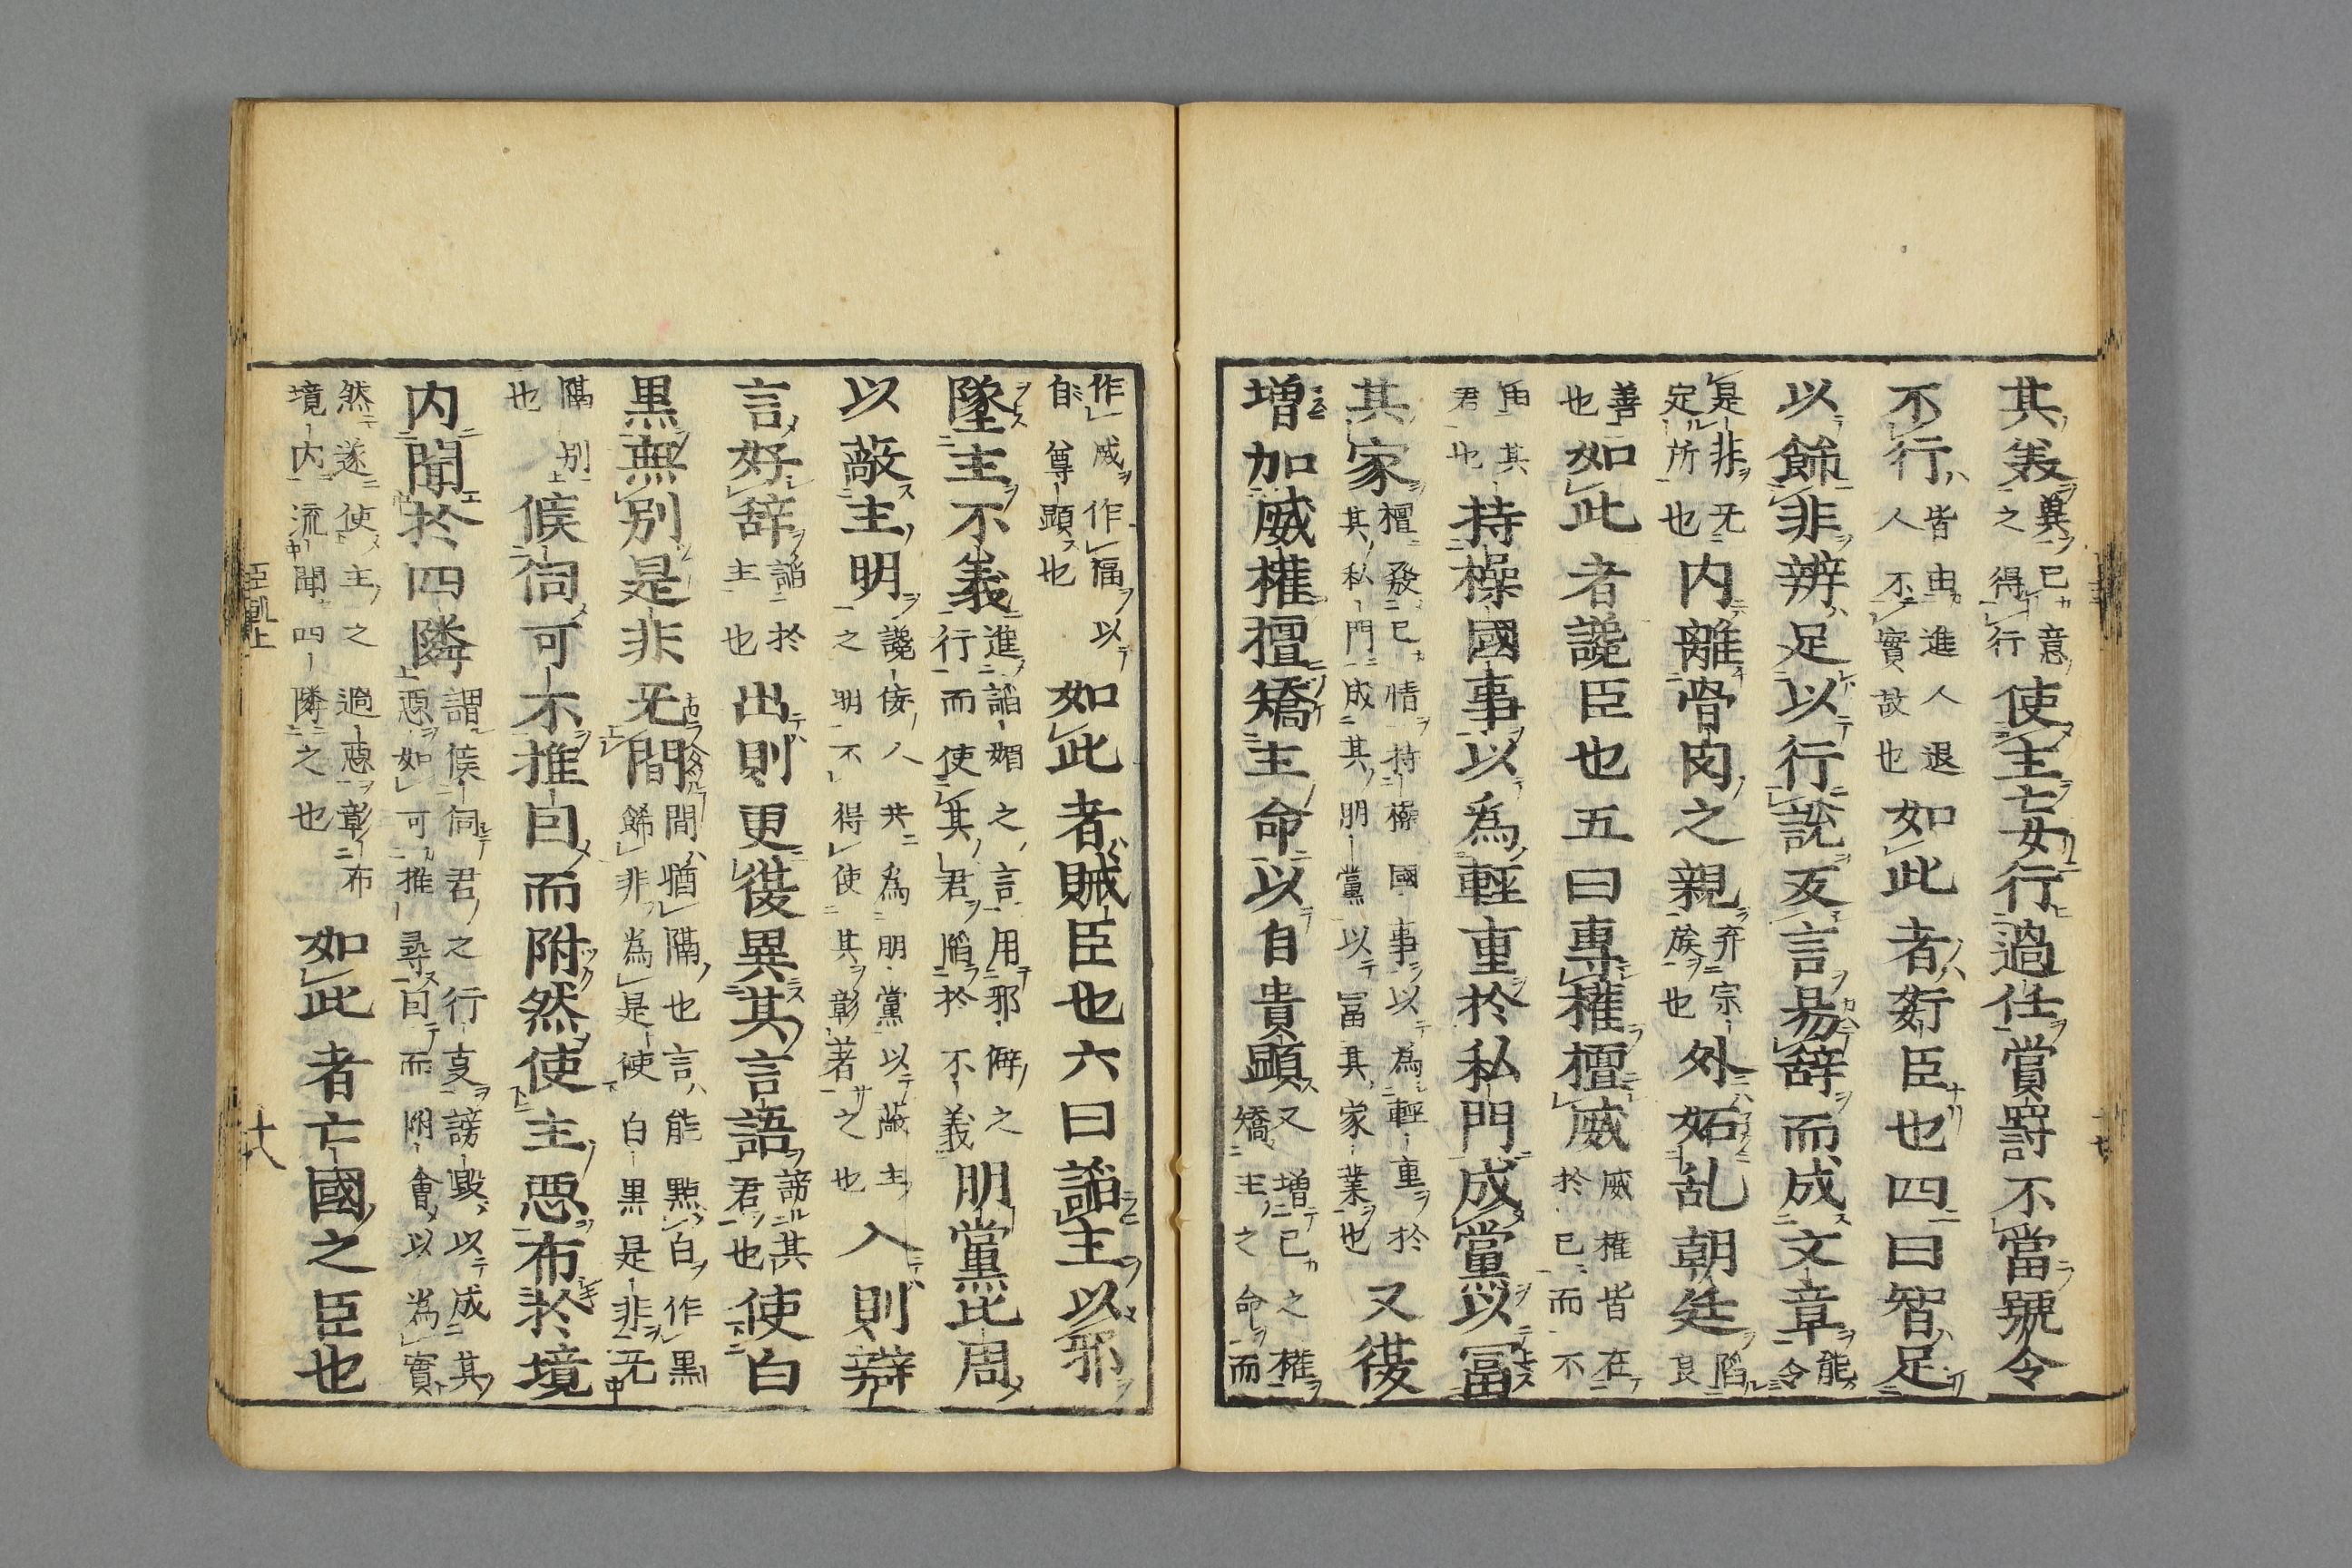 其美冀己意之得行使主妄行過任賞罸不當號令
不行皆由進人退人不實故也如此者姧臣也四曰智足
以餙非辨足以行說反言易辞而成文章能令
是非无定所也内離骨肉之親弃宗族也外妬乱朝廷陷良
善也如此者讒臣也五曰專權擅威威權皆在於己而不
由其君也持操國事以為輕重於私門成黨以冨
其家擅發己情持操國事以為輕重於其私門成其朋黨以冨其家業也又復
増加威權擅矯主命以自貴顕又増己之權矯主之命而
作威作福以自尊顕也如此者賊臣也六曰諂主以邪
墜主不義進諂媚之言用邪僻之行而使其君陷於不義朋黨比周
以蔽主明讒佞人共為朋黨以蔽主之明不得使其彰著之也入則辯
言好辞諂於主也出則更復異其言語謗其君也使白
黒無別是非无間間猶隔也言能㸃白作黒餙非為是使白黒是非无
隔別也候伺可不推因而附然使主惡布於境
内聞於四隣謂候伺君之行㕝謗毀以成其惡如可推尋因而附會以為實
然遂使主之過惡彰布境内流聞四隣之也如此者亡國之臣也
臣軌上
十八